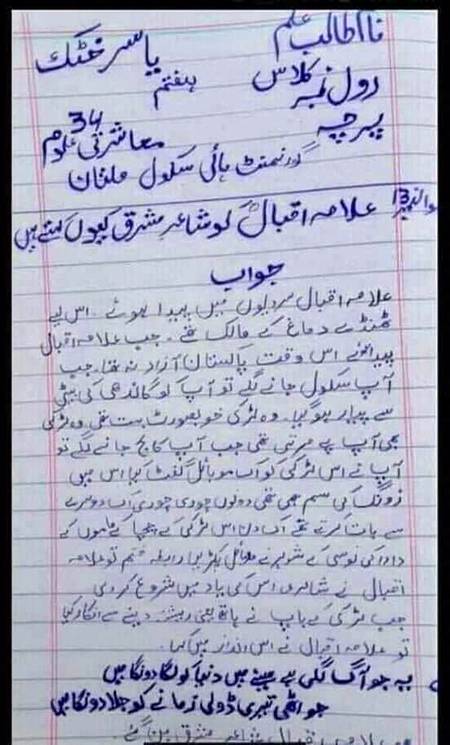 نام طالب علم یاسر خٹک
کلاس ہفتم
رول نمبر 34
پرچہ معاشرتی علوم
گورنمنٹ ہائی سکول ملتان
13 علامہ اقبال کو شاعر مشرق کیوں کہتے ہیں
جواب
علامہ اقبال سردیوں میں پیدا ہوئے۔ اس لیے
ٹھنڈے دماغ کے مالک تھے۔ جب علامہ اقبال
پیدا ہوئے اس وقت پاکستان آزاد نہ تھا۔ جب
آپ سکول جانے لگے تو آپ کو گاندھی کی بیٹی
سے پیار ہو گیا۔ وہ لڑکی خوبصورت بہت تھی وہ لڑکی
بھی آپ پے مرتی تھی جب آپ کالج جانے لگے تو
آپ نے اس لڑکی کو اک موبائل گفٹ کیا اس میں
زونگ کی سم بھی تھی دونوں چوری چوری اک دوسرے
سے بات کرتے تھے اک دن اس لڑکی کے چچا کے ماموں کے
دادا کی نوسی کے شوہر نے موبائل پکڑ لیا رابطہ ختم تو علامہ
اقبال نے شاعری اس کی یاد میں شروع کر دی
جب لڑکی کے باپ نے رشتہ دینے سے انکار کیا
تو علامہ اقبال نے اس انداز میں کہا۔
یہ جو آگ لگی ہے سینے میں دنیا کو لگا دونگا میں
جو اٹھی تیری ڈولی زمانے کو جلا دونگا میں
علامہ اقبال شاعر مشرق بن گئے